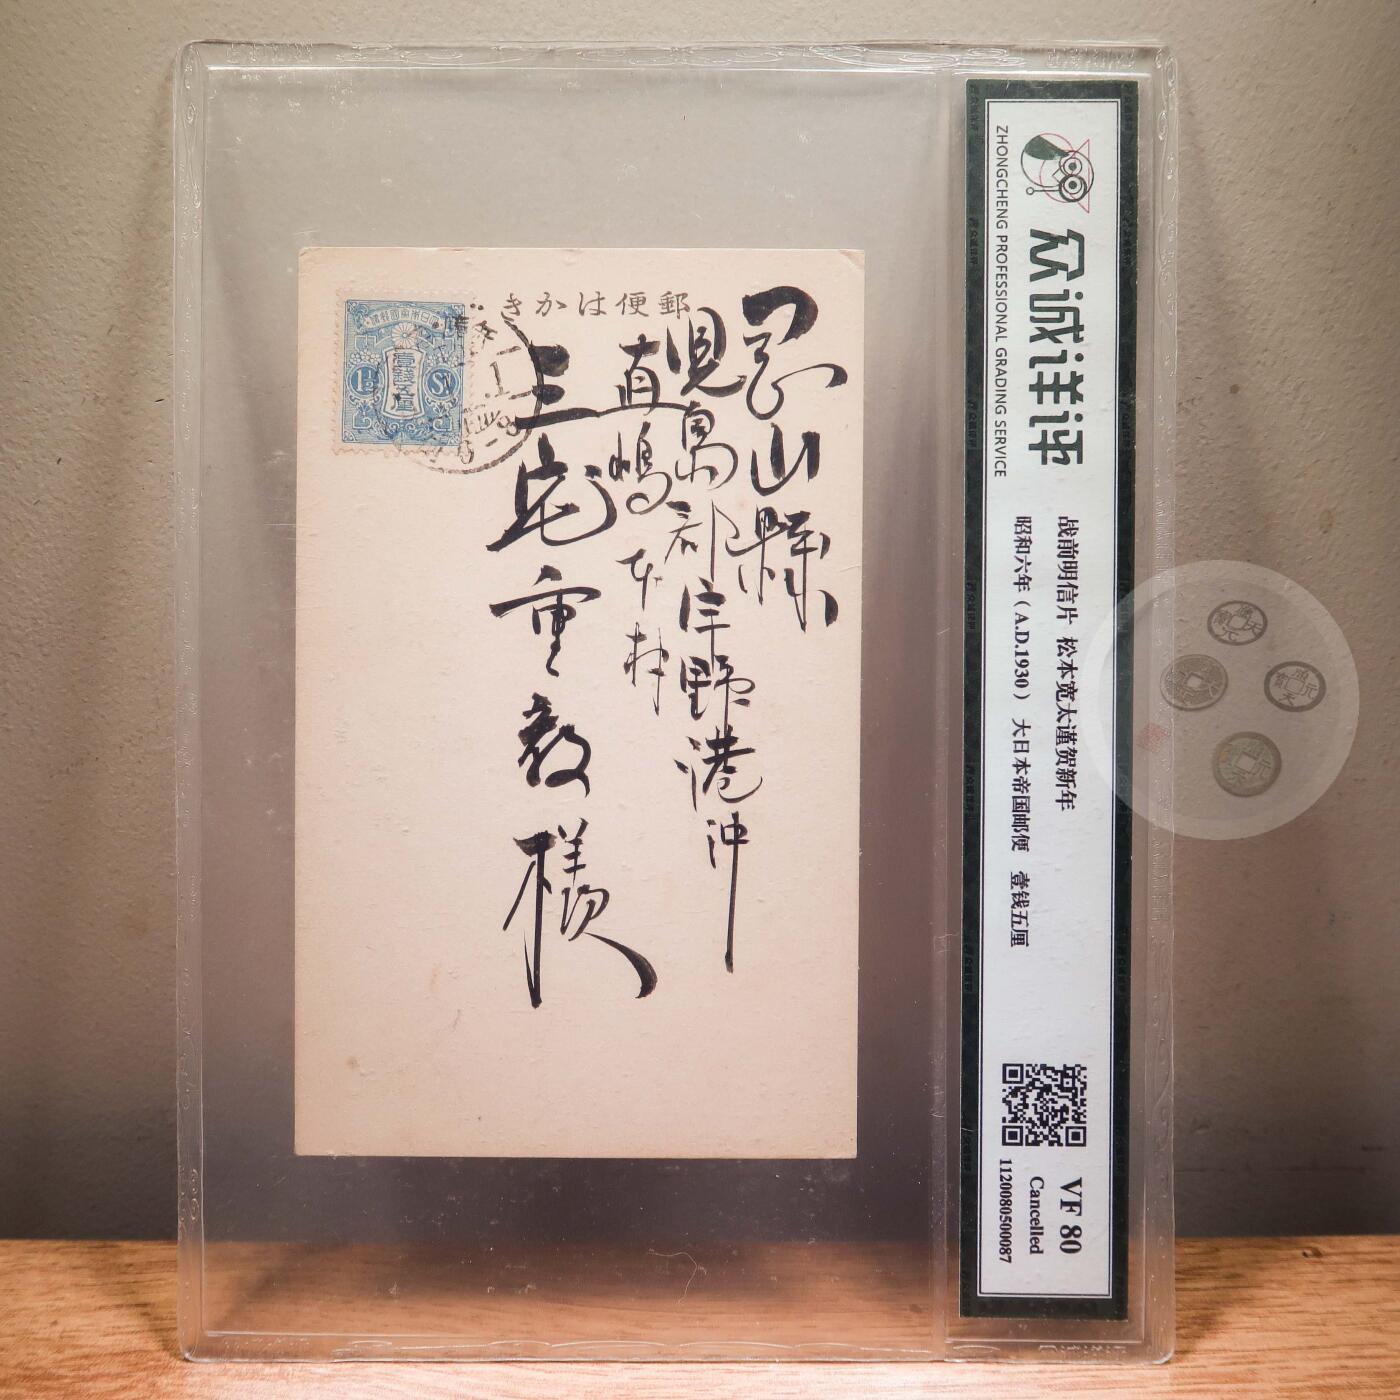 郵便はかき
大日本帝國郵便
壹錢五厘
1½
Sn
岡山縣
児島郡宇野港沖
直嶋本村
三宅重毅様
众诚详评
ZHONGCHENG PROFESSIONAL GRADING SERVICE
战前明信片 松本宽太谨贺新年
昭和六年（A.D.1930） 大日本帝国邮便 壹钱五厘
VF 80
Cancelled
1120080500087